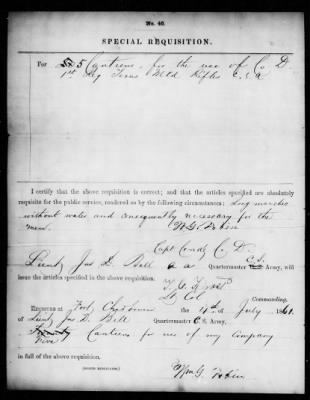 No. 40.
SPECIAL REQUISITION.
For 55 Canteens for the use of Co D.
1st Reg Texas Mtd Rifles C.S.A
I certify that the above requisition is correct; and that the articles specified are absolutely
requisite for the public service, rendered so by the following circumstances: Long marches
without water and consequently necessary for the
men.
Wm G. Tobin
Capt Comdg Co D.
Lieut Jas D. Bell Quartermaster C.S. Army, will
issue the articles specified in the requisition.
Lt Col Commanding.
RECEIVED at the 4th of July 1861.
of Lieut Jas D. Bell Quartermaster C. S. Army,
Five Canteens for use of my company
in full of the above requisition.
Wm G. Tobin